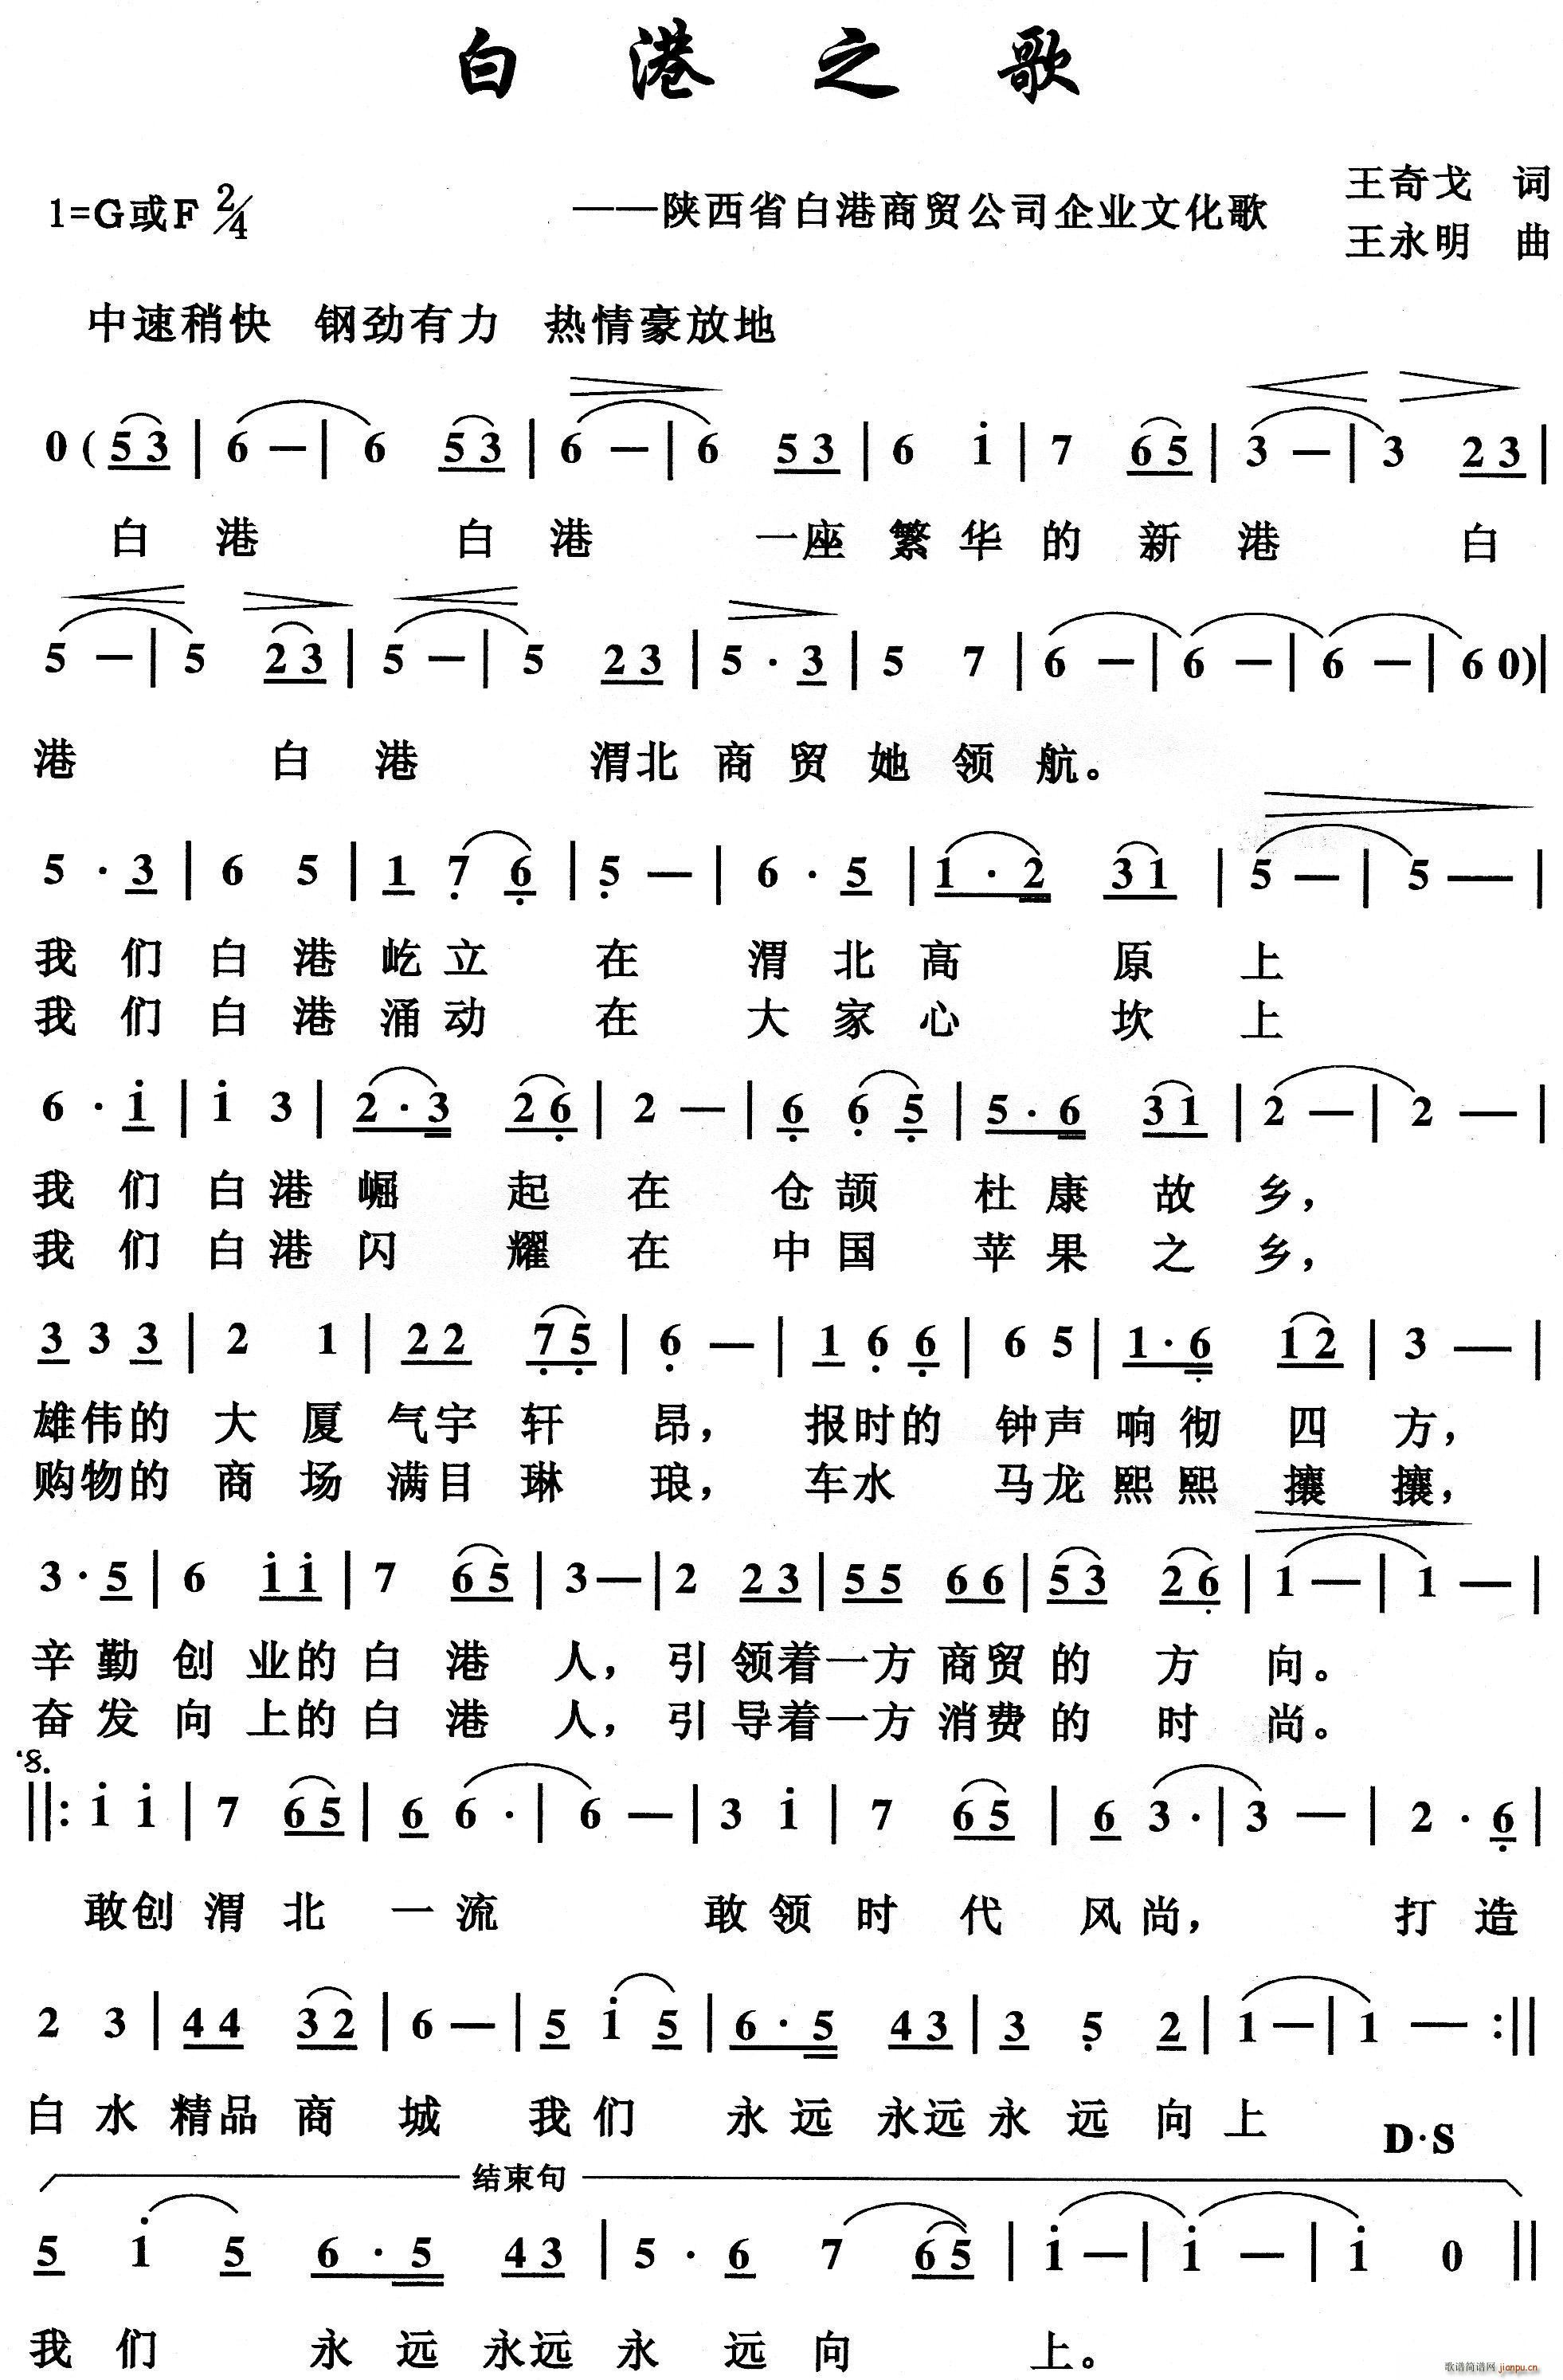 白港之歌
1=G或F 2/4
——陕西省白港商贸公司企业文化歌
王奇戈 词
王永明 曲
中速稍快 钢劲有力 热情豪放地
0 ( 5 3 | 6 — | 6 5 3 | 6 — | 6 5 3 | 6 i | 7 6 5 | 3 — | 3 2 3 |
白 港 白 港 一座 繁 华 的 新 港 白
5 — | 5 2 3 | 5 — | 5 2 3 | 5 · 3 | 5 7 | 6 — | 6 — | 6 — | 6 0) |
港 白 港 渭北 商 贸 她 领 航。
5 · 3 | 6 5 | 1 7 6 | 5 — | 6 · 5 | 1 · 2 3 1 | 5 — | 5 — |
我 们 白 港 屹 立 在 渭 北 高 原 上
我 们 白 港 涌 动 在 大 家 心 坎 上
6 · i | i 3 | 2 · 3 2 6 | 2 — | 6 6 5 | 5 · 6 3 1 | 2 — | 2 — |
我 们 白 港 崛 起 在 仓 颉 杜 康 故 乡，
我 们 白 港 闪 耀 在 中 国 苹 果 之 乡，
3 3 3 | 2 1 | 2 2 7 5 | 6 — | 1 6 6 | 6 5 | 1 · 6 1 2 | 3 — |
雄伟的 大 厦 气宇 轩 昂， 报时的 钟声 响 彻 四 方，
购物的 商 场 满目 琳 琅， 车水 马龙 熙 熙 攘 攘，
3 · 5 | 6 i i | 7 6 5 | 3 — | 2 2 3 | 5 5 6 6 | 5 3 2 6 | 1 — | 1 — |
辛 勤 创 业的 白 港 人， 引 领着一方 商贸 的 方 向。
奋 发 向 上的 白 港 人， 引 导着一方 消费 的 时 尚。
||: i i | 7 6 5 | 6 6 · | 6 — | 3 i | 7 6 5 | 6 3 · | 3 — | 2 · 6 |
敢创 渭 北 一 流 敢 领 时 代 风 尚， 打 造
2 3 | 4 4 3 2 | 6 — | 5 i 5 | 6 · 5 4 3 | 3 5 2 | 1 — | 1 — :||
白 水 精品 商 城 我 们 永 远 永远 永 远 向 上
D·S
结束句
5 i 5 6 · 5 4 3 | 5 · 6 7 6 5 | i — | i — | i 0 ||
我 们 永 远 永远 永 远 向 上。
歌谱简谱网
jianpu.cn